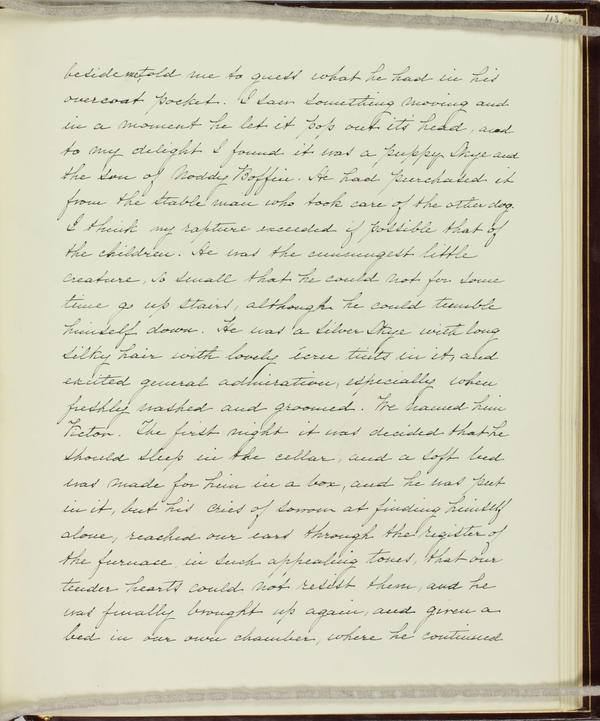 113
beside me, told me to guess what he had in his
overcoat pocket. I saw something moving and
in a moment he let it pop out it's head, and
to my delight I found it was a puppy Skye and
the son of Noddy Boffin. He had purchased it
from the stable man who took care of the other dog.
I think my rapture exceeded if possible that of
the children. He was the cunningest little
creature, so small that he could not for some
time go up stairs, although he could tumble
himself down. He was a silver Skye with long
silky hair with lovely écru tints in it, and
excited general admiration, especially when
freshly washed and groomed. We named him
Victor. The first night it was decided that he
should sleep in the cellar, and a soft bed
was made for him in a box, and he was put
in it, but his cries of sorrow at finding himself
alone, reached our ears through the register of
the furnace, in such appealing tones, that our
tender hearts could not resist them, and he
was finally brought up again, and given a
bed in our own chamber, where he continued